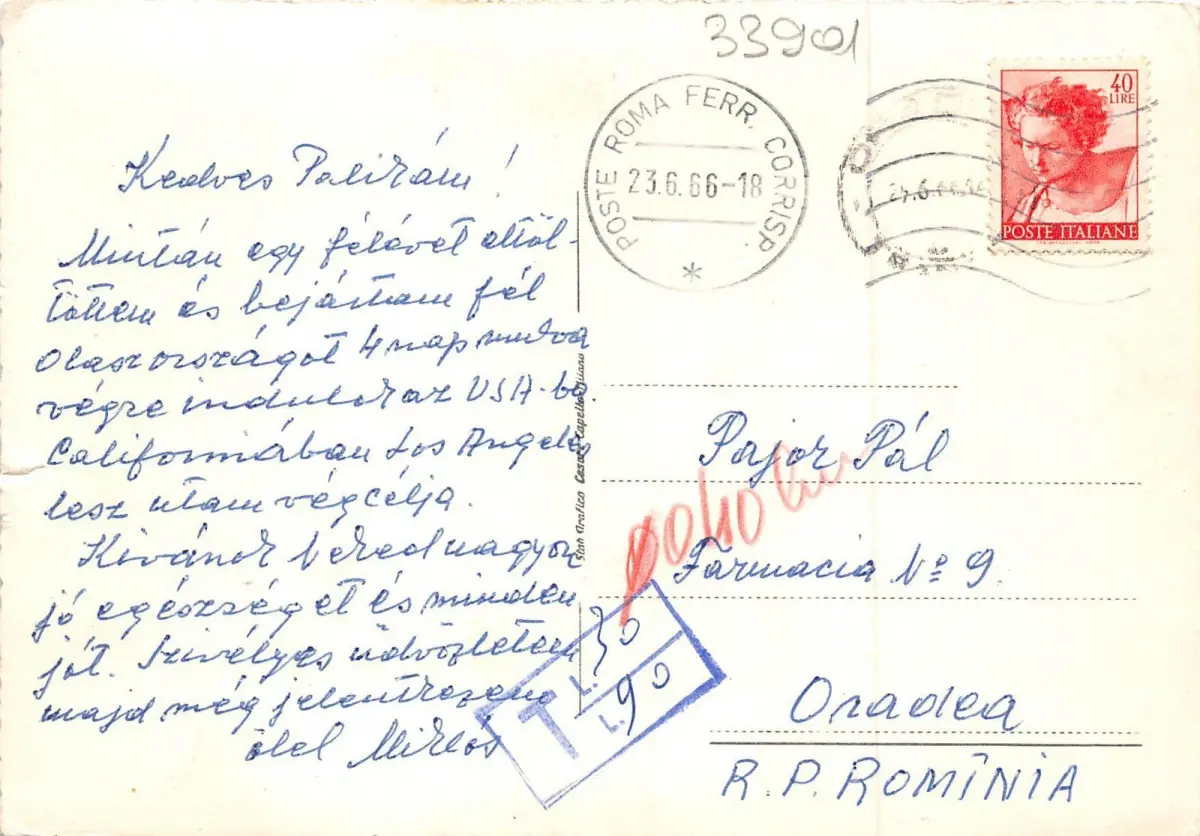 33901
POSTE ROMA FERR. CORRISP
23.6.66-18
*
40
LIRE
POSTE ITALIANE
Kedves Palikám!
Miután egy félévet eltöl-
töttem és bejártam fél
Olaszországot 4 nap mulva
végre indulok az USA-ba.
Californiában Los Angeles
lesz utam végcélja.
Kivánok Neked nagyon
jó egészséget és minden
jót. Szivélyes üdvözletem
majd még jelentkezem
ölel Miklós
Stab Grafico Cesare Capello
Pajor Pál
Farmacia № 9.
Oradea
R.P. ROMÎNIA
T
L. 30
L. 90